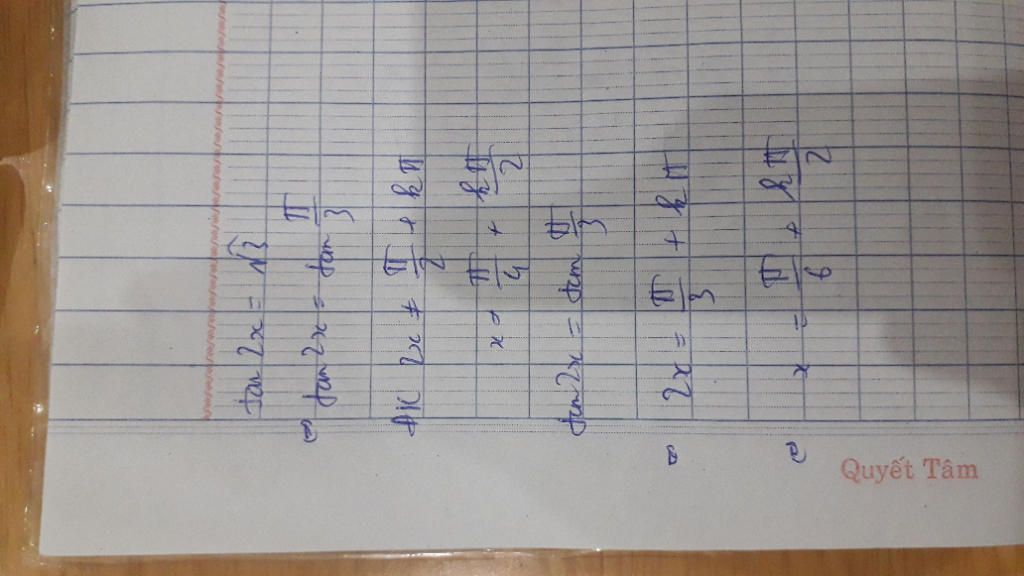 tan 2x = √3
⇔ tan 2x = tan π/3
ĐK 2x ≠ π/2 + kπ
x ≠ π/4 + kπ/2
tan 2x = tan π/3
⇔ 2x = π/3 + kπ
⇔ x = π/6 + kπ/2
Quyết Tâm